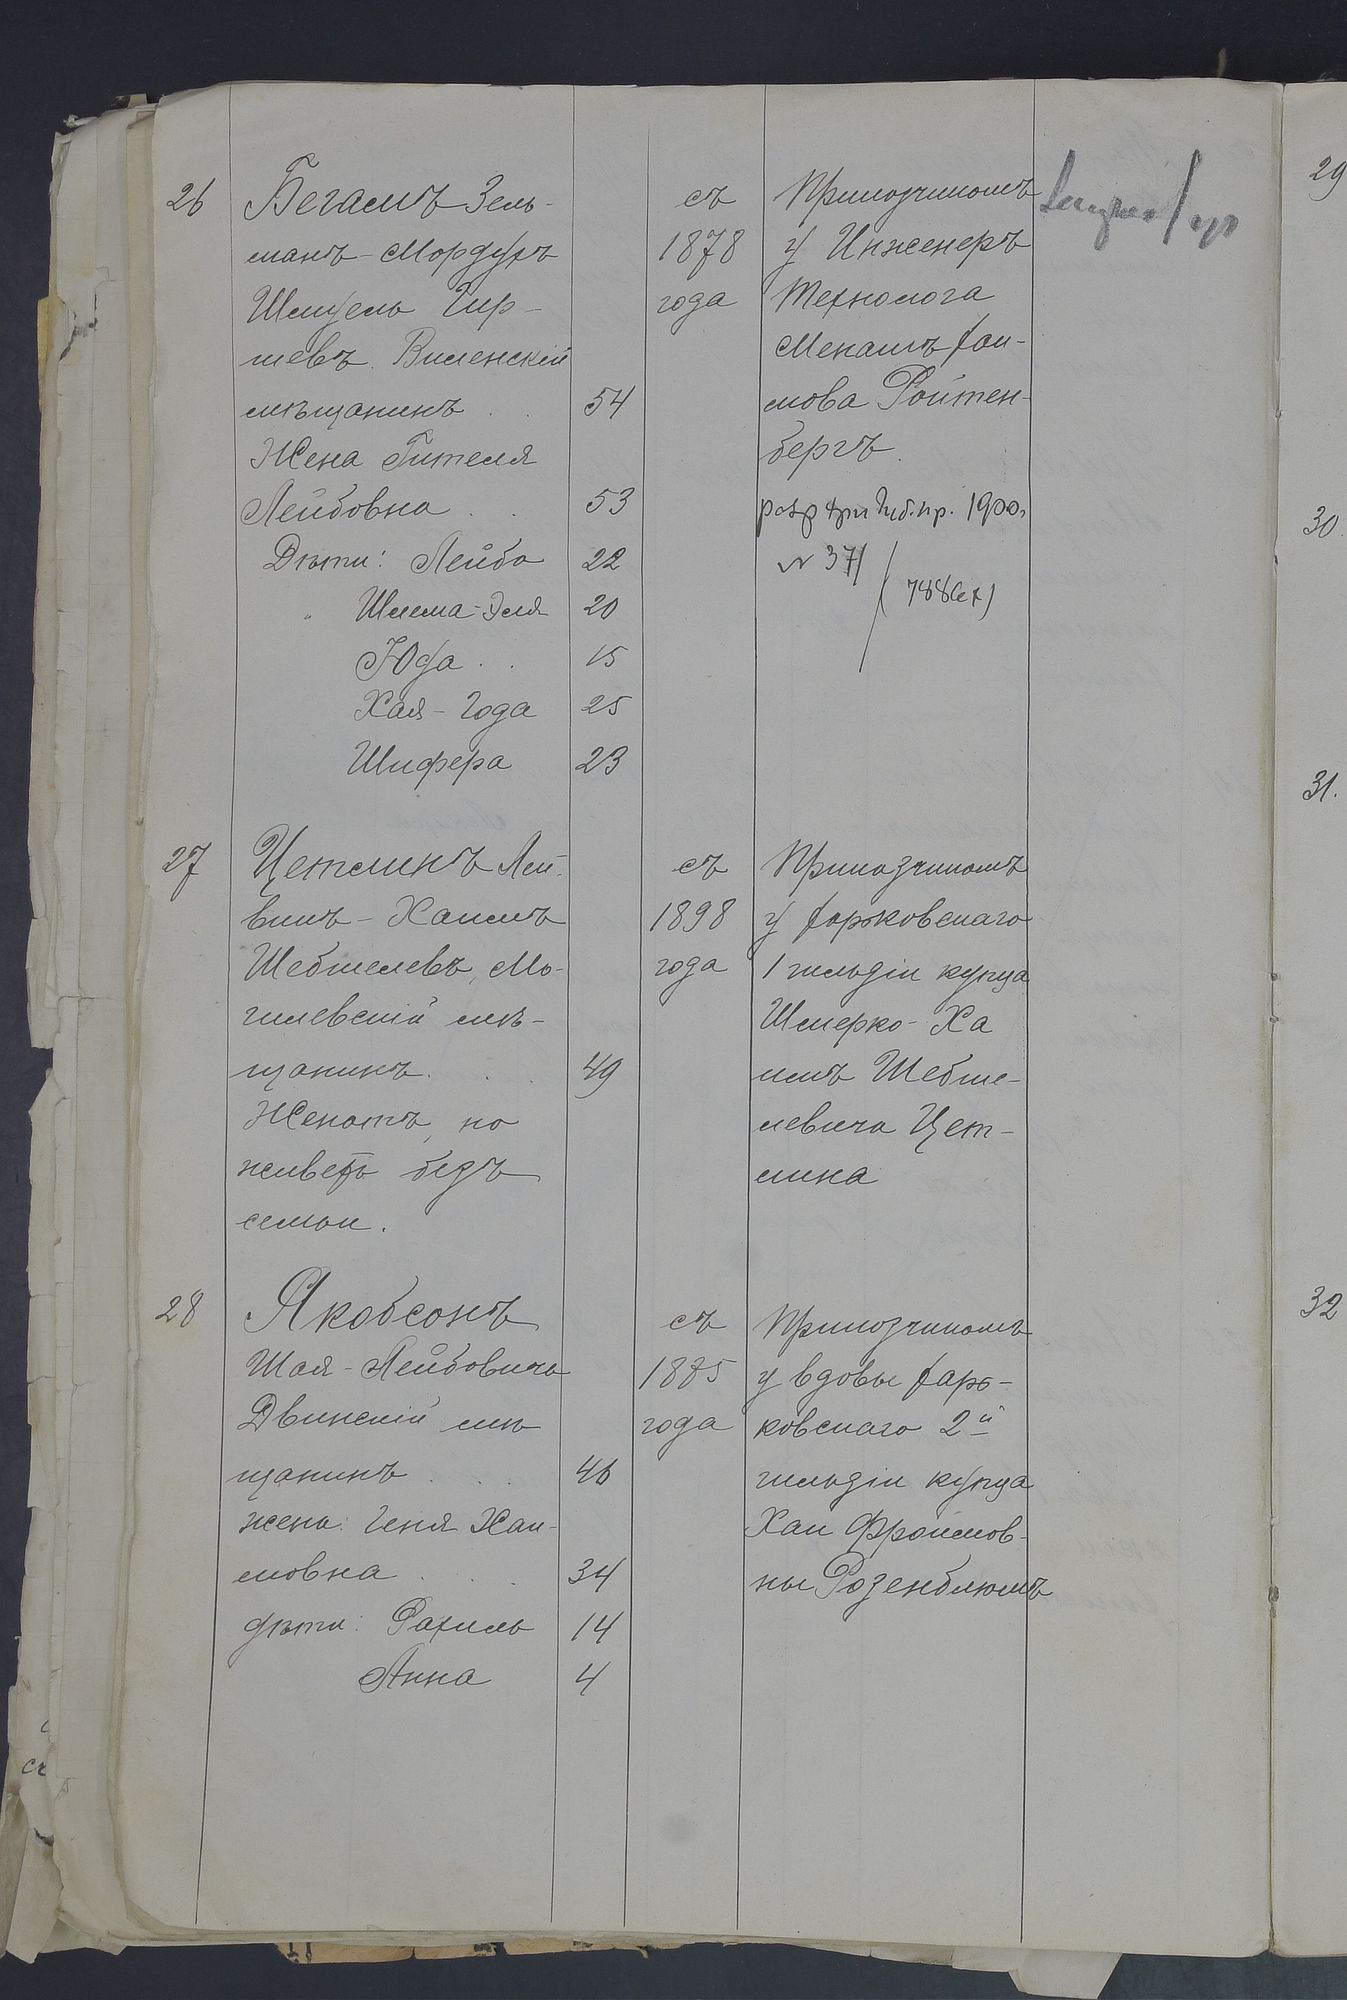 26
Бегамъ Зель-
манъ-Мордухъ
Шмуель Гир-
шевъ. Виленскій
мѣщанинъ . . 54
Жена Гителя
Лейбовна . . 53
Дѣти: Лейба 22
" Шлема-Эля 20
Юда . . 15
Хая-Года 25
Шифера 23
съ
1878
года
Прикащикомъ
у Инженеръ
Технолога
Менашъ Хаи-
мова Ройтен-
бергъ.
губ. пр. 1900.
№ 371
27
Цетлинъ Лей-
викъ-Хаимъ
Шевтелевъ, Мо-
гилевскій мѣ-
щанинъ . . . 49
Женатъ, но
живетъ безъ
семьи.
съ
1898
года
Прикащикомъ
у Харьковскаго
1 гильдіи купца
Шмерко-Ха
имъ Шевте-
левича Цет-
лина
28
Якобсонъ
Шая-Лейбовичъ
Двинскій мѣ
щанинъ . . . 46
жена: Геня Хаи-
мовна . . . 34
дѣти: Рахиль 14
Анна 4
съ
1875
года
Прикащикомъ
у вдовы Харь-
ковскаго 2й
гильдіи купца
Хаи Фроимов-
ны Розенблюмъ
29
30.
31.
32